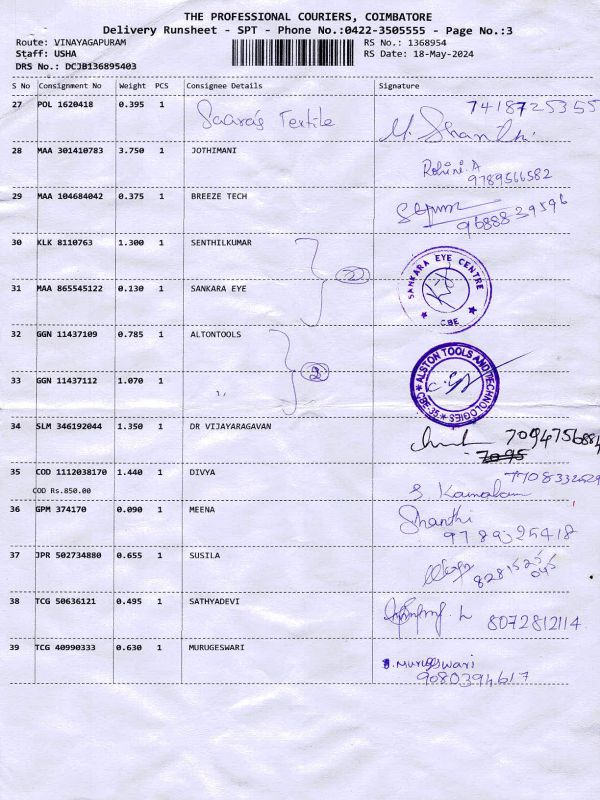 THE PROFESSIONAL COURIERS, COIMBATORE
Delivery Runsheet - SPT - Phone No.:0422-3505555 - Page No.:3
Route: VINAYAGAPURAM RS No.: 1368954
Staff: USHA RS Date: 18-May-2024
DRS No.: DCJB136895403
S No Consignment No Weight PCS Consignee Details Signature
27 POL 1620418 0.395 1 Saara's Textile 7418725355
M. Shanthi
28 MAA 301410783 3.750 1 JOTHIMANI Rohini.A
9789566582
29 MAA 104684042 0.375 1 BREEZE TECH
9688839596
30 KLK 8110763 1.300 1 SENTHILKUMAR
31 MAA 865545122 0.130 1 SANKARA EYE SANKARA EYE CENTRE
CBE
32 GGN 11437109 0.785 1 ALTONTOOLS
33 GGN 11437112 1.070 1 2 ALSTON TOOLS AND TECHNOLOGIES
CBE-35
34 SLM 346192044 1.350 1 DR VIJAYARAGAVAN 7094756884
7095
35 COD 1112038170 1.440 1 DIVYA
COD Rs.850.00 S Kamalam
36 GPM 374170 0.090 1 MEENA Shanthi
9789325418
37 JPR 502734880 0.655 1 SUSILA
38 TCG 50636121 0.495 1 SATHYADEVI 8072812114
39 TCG 40990333 0.630 1 MURUGESWARI J. Murugeswari
9080394617